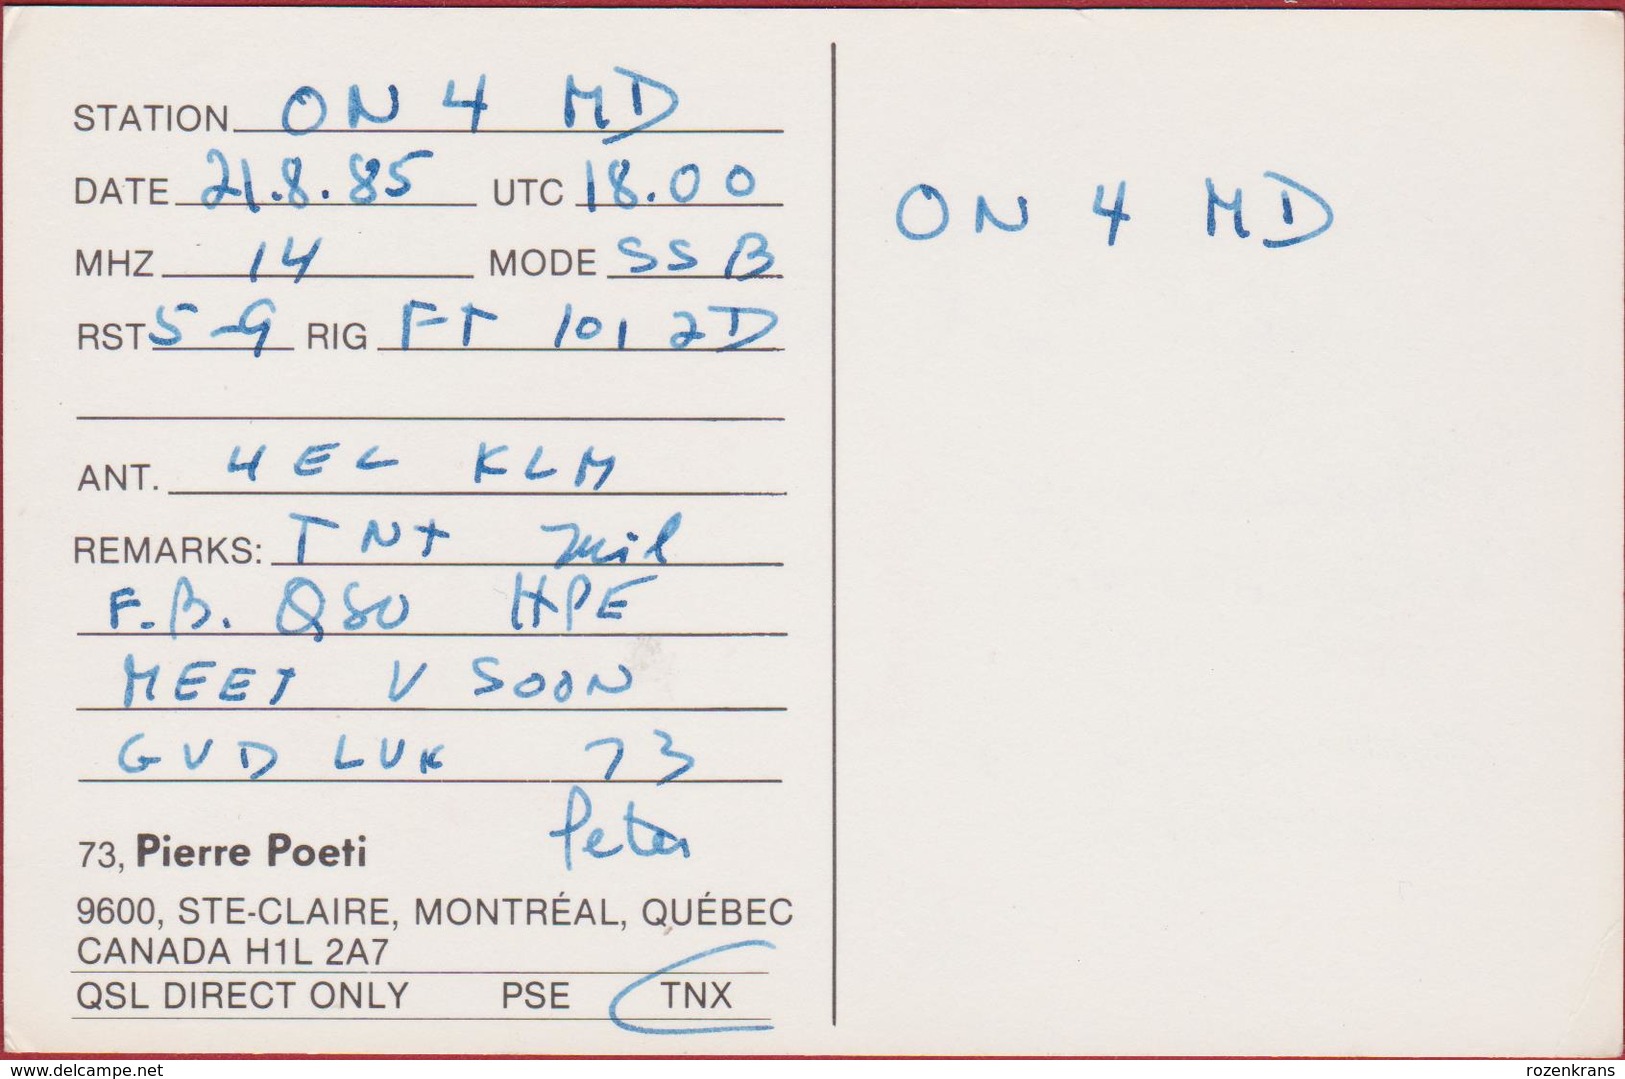 STATION ON 4 MD
DATE 21.8.85 UTC 18.00
MHZ 14 MODE SSB
RST 5-9 RIG FT 101 ZD
ANT. 4 EL KLM
REMARKS: TNX
F.B. QSO HPE
MEET V SOON
GUD LUK 73
Peter
73, Pierre Poeti
9600, STE-CLAIRE, MONTRÉAL, QUÉBEC
CANADA H1L 2A7
QSL DIRECT ONLY PSE TNX
ON 4 MD
www.delcampe.net
rozenkrans